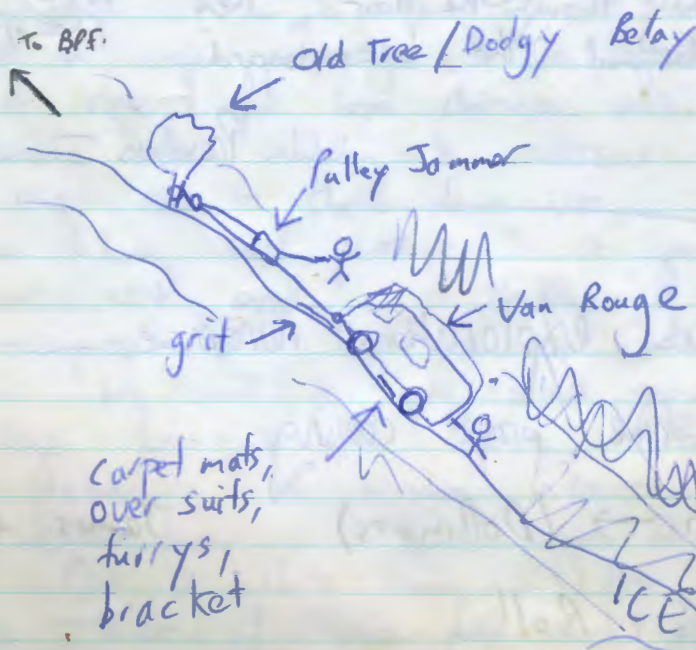 To BPF.
Old Tree / Dodgy Belay
Pulley Jammer
Van Rouge
grit
carpet mats,
over suits,
furrys,
bracket
ICE